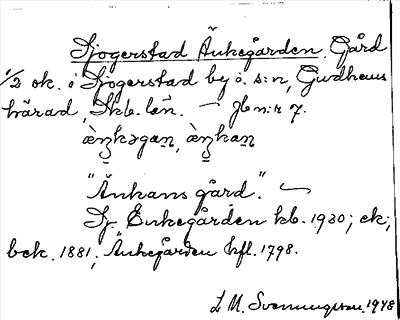 Sjogerstad Änkegården. Gård
1/2 ok. i Sjogerstad by o. s:n, Gudhems
härad, Skb. län. — Jb n:r 7.
"Änkans gård." —
Sj. Enkegården kb. 1930; ek;
bek. 1881; Änkegården kfl. 1798.
L M. Svenungsson. 1948